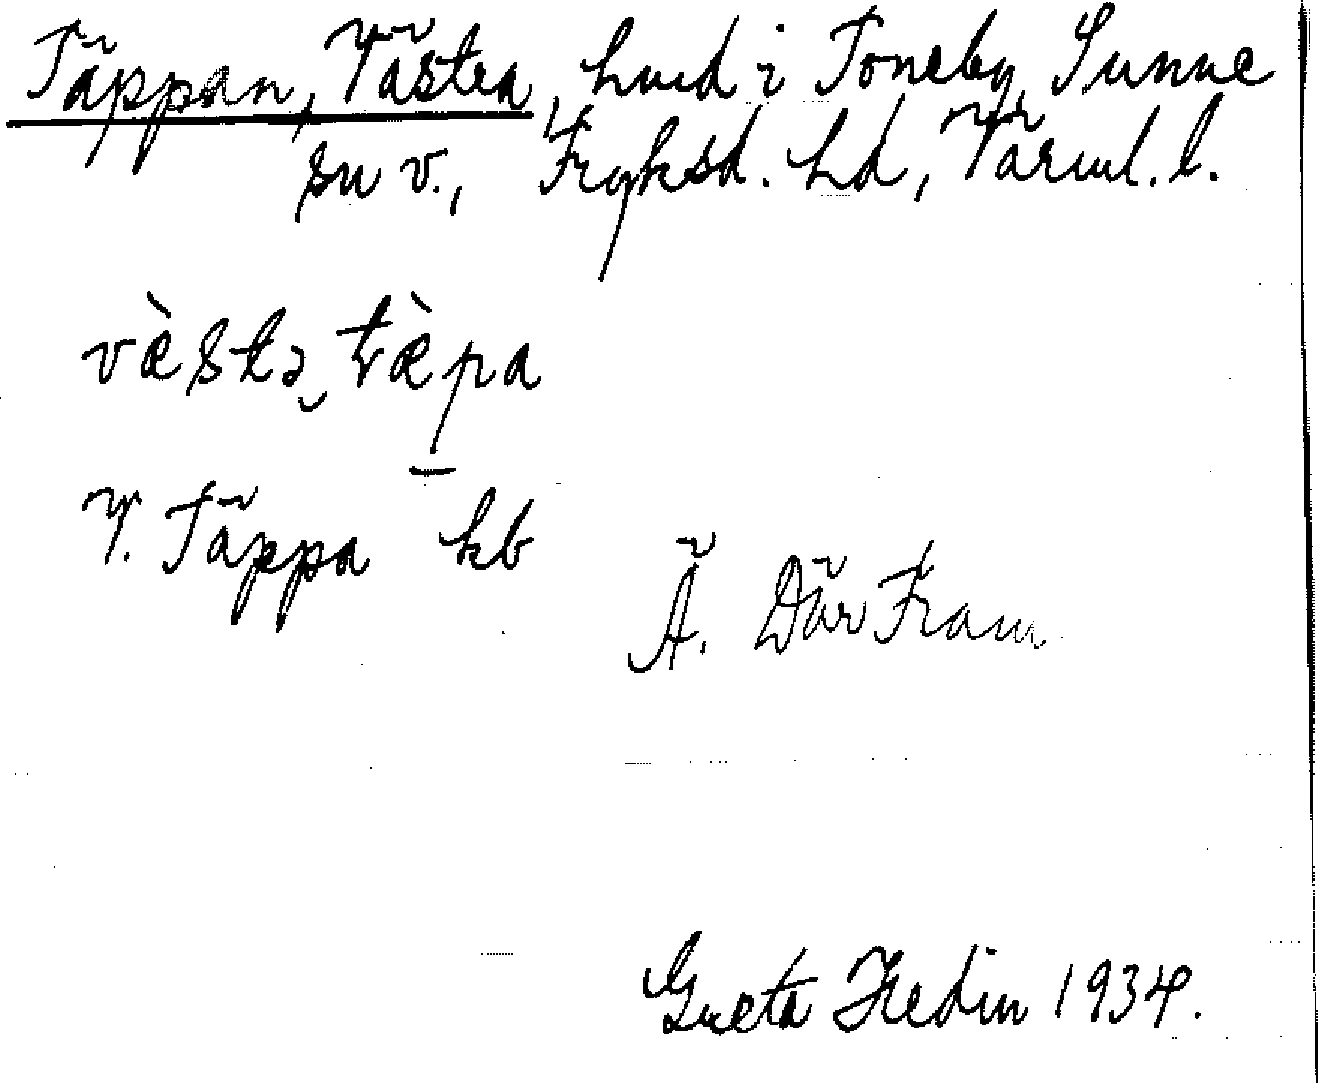 Täppan, Västra, hmd i Toneby, Sunne
sn v., Fryksd. hd, Värml. l.
væ̀stə‿tæ̀pa
V. Täppa kb
Ä. Där Fram
Greta Hedin 1934.